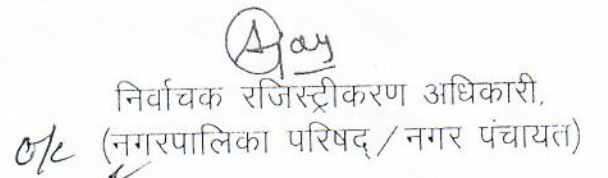 Ajay
निर्वाचक रजिस्ट्रीकरण अधिकारी,
o/c (नगरपालिका परिषद् / नगर पंचायत)